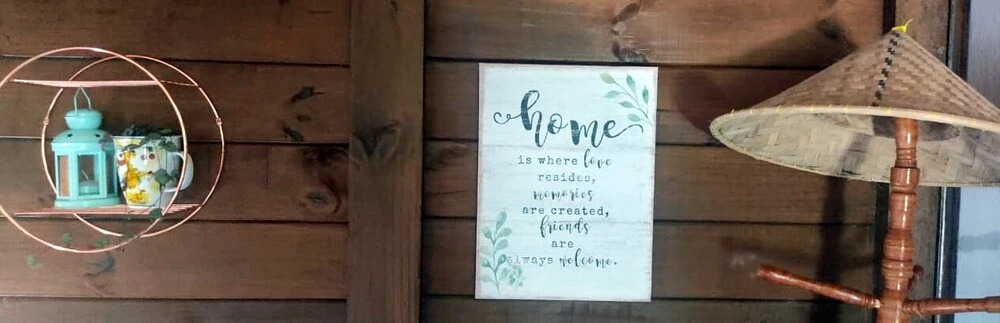 home
is where love
resides,
memories
are created,
friends
are
always welcome.